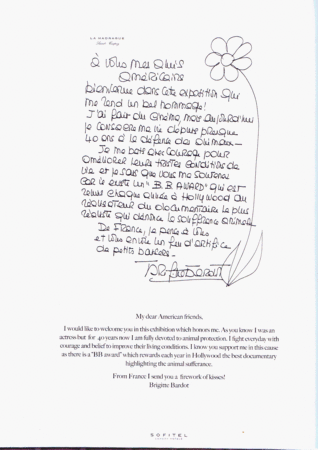 LA MADRAGUE
Saint Tropez
À vous mes amis
américains
bienvenue dans cette exposition qui
me rend un bel hommage!
J'ai fait du cinéma, mais aujourd'hui
je consacre ma vie depuis presque
40 ans à la défense des animaux
Je me bats avec courage pour
améliorer leurs tristes conditions de
vie et je sais que vous me soutenez
car il existe un "B.B. AWARD" qui est
remis chaque année à Hollywood au
réalisateur du documentaire le plus
réaliste qui dénonce la souffrance animale.
De France, je pense à vous
et vous envoie un feu d'artifice
de petits baisers.
Brigitte Bardot
My dear American friends,
I would like to welcome you in this exhibition which honors me. As you know I was an
actress but for 40 years now I am fully devoted to animal protection. I fight everyday with
courage and belief to improve their living conditions. I know you support me in this cause
as there is a "BB award" which rewards each year in Hollywood the best documentary
highlighting the animal sufferance.
From France I send you a firework of kisses!
Brigitte Bardot
SOFITEL